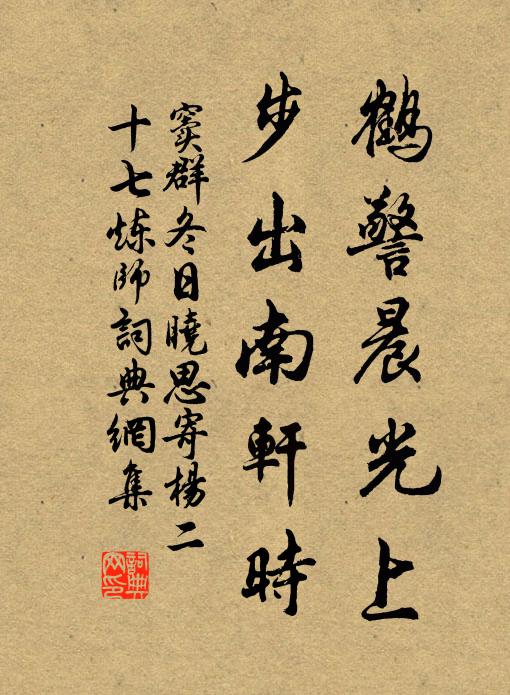 鶴警晨光上
步出南軒時
竇群冬日曉思寄楊二
十七煉師詞典網集
詞典
网印